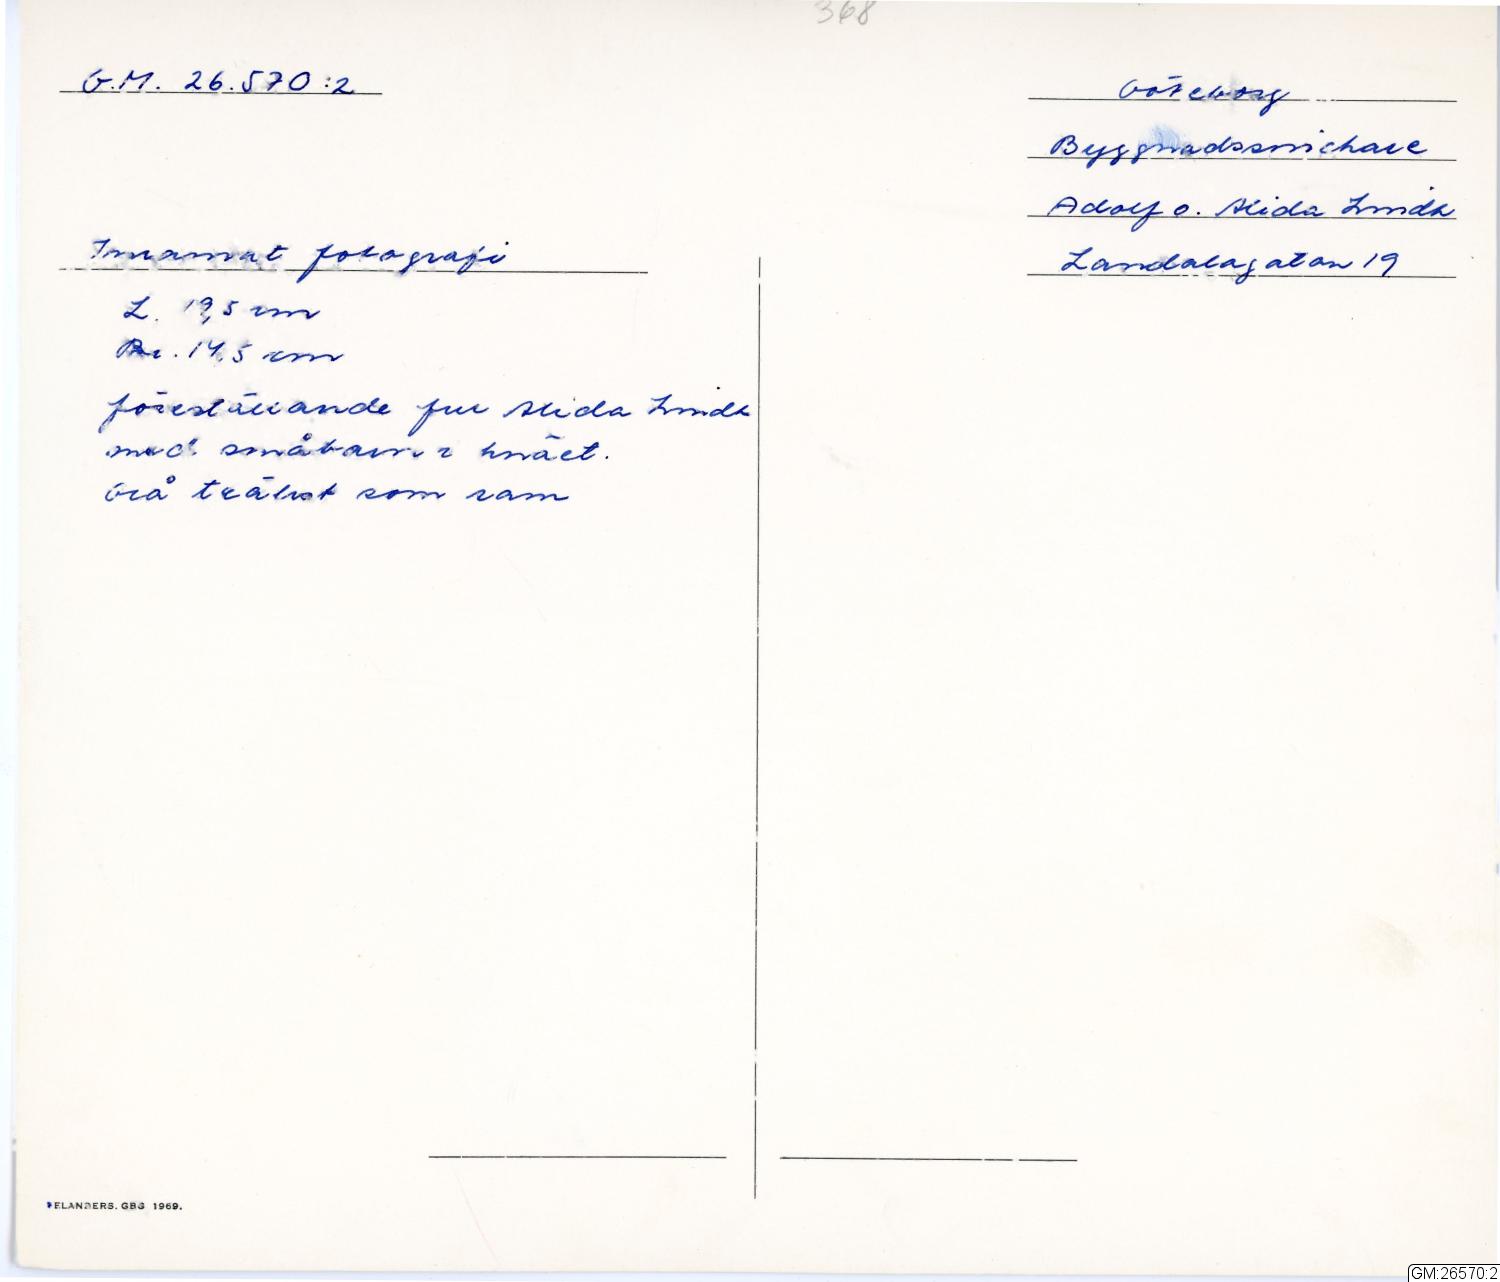 368
G.M. 26.570:2
Göteborg
Byggnadssnickare
Adolf o. Alida Lindh
Landalagatan 19
Inramat fotografi
L. 19,5 cm
Br. 14,5 cm
föreställande fru Alida Lindh
med småbarn i knäet.
Grå trälist som ram
ELANDERS. GBG 1969.
GM:26570:2